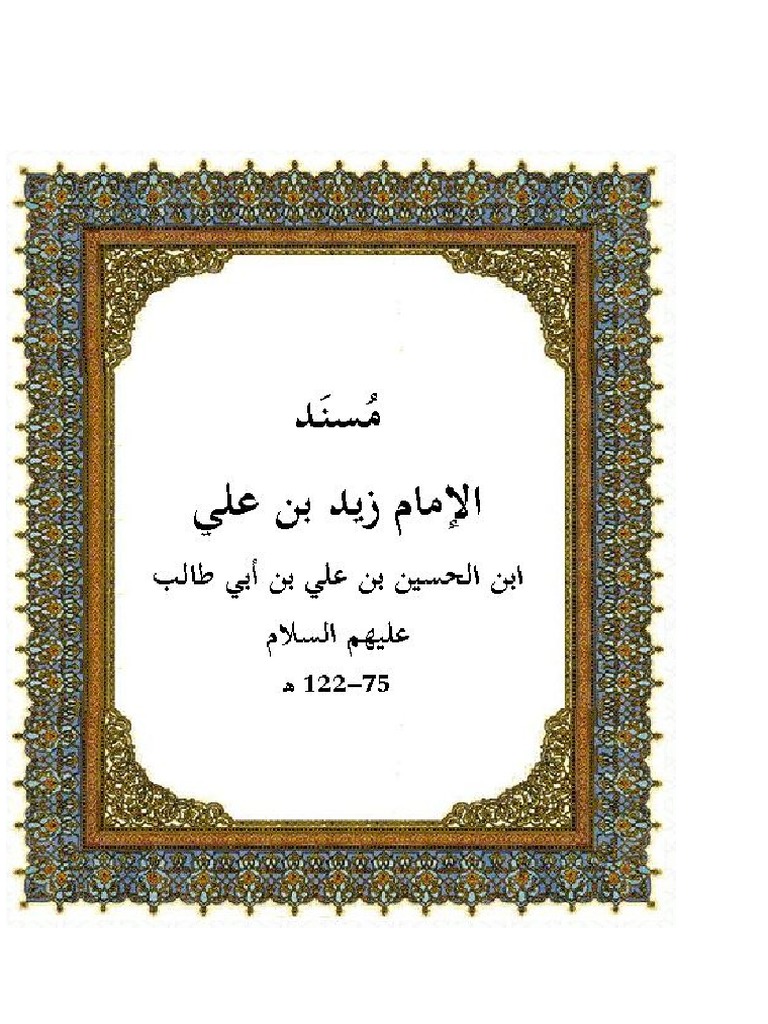 مُسنَد
الإمام زيد بن علي
ابن الحسين بن علي بن أبي طالب
عليهم السلام
75–122 هـ